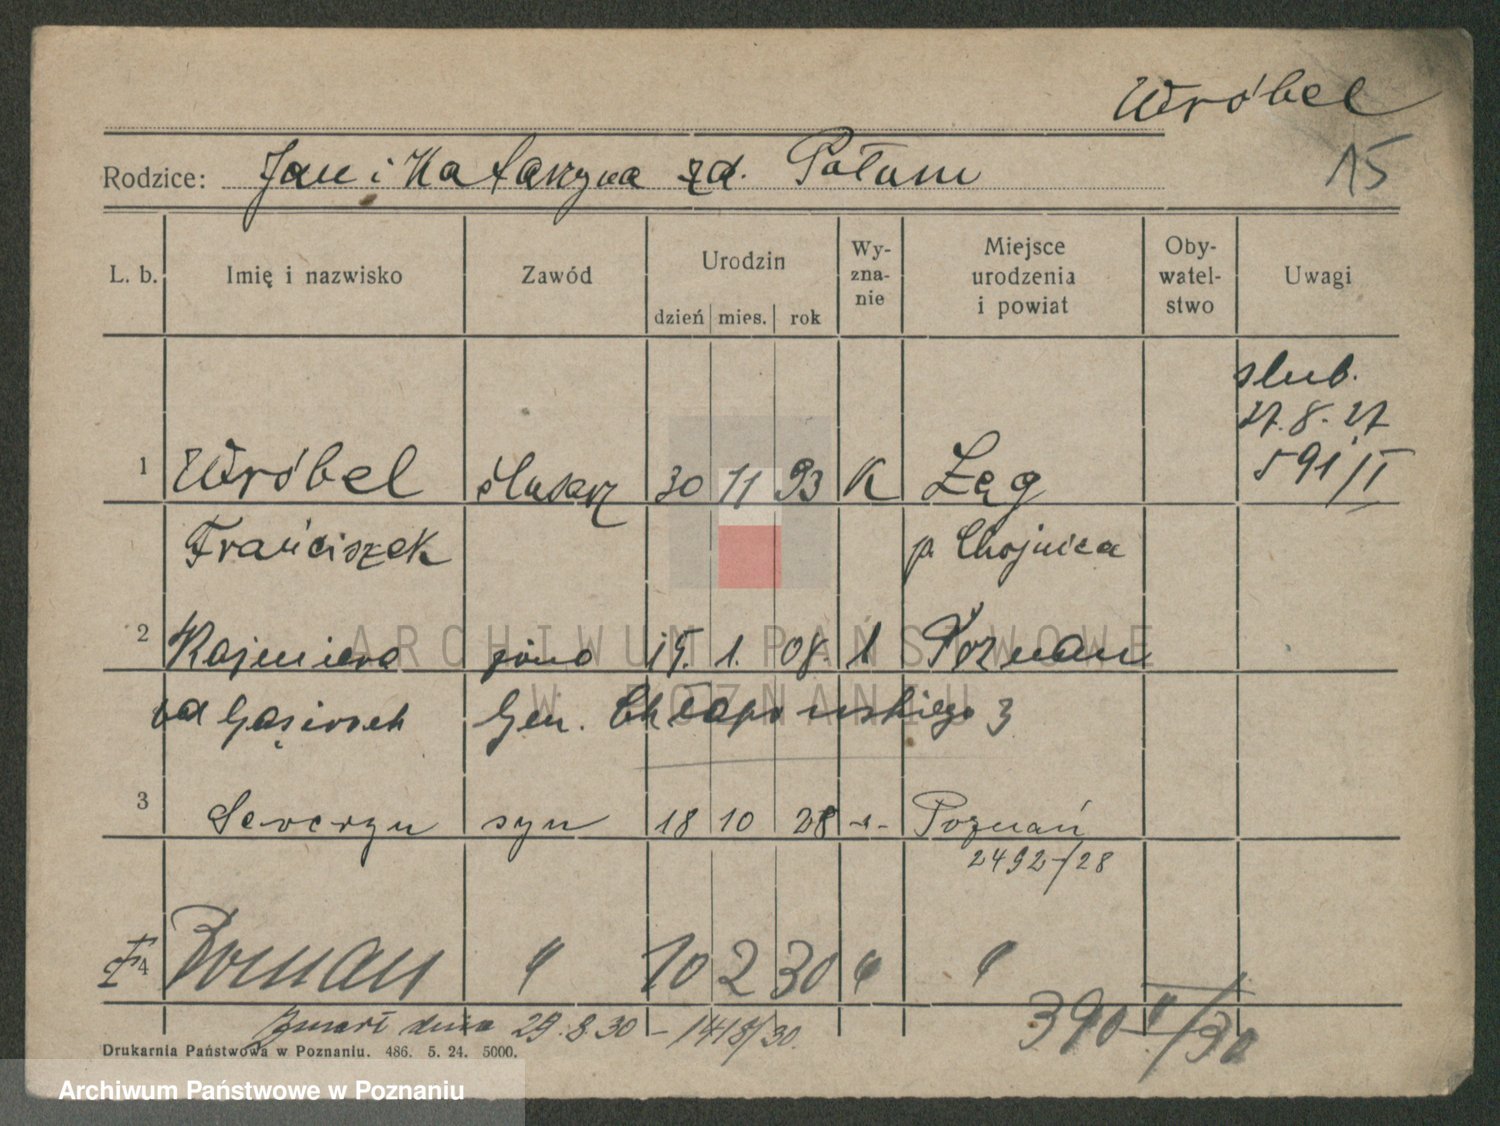 Wróbel
15
Rodzice: Jan i Katarzyna zd. Połum
L. b. Imię i nazwisko Zawód Urodzin dzień mies. rok Wy-zna-nie Miejsce urodzenia i powiat Oby-watel-stwo Uwagi
slub.
27. 8. 27
591/II
1 Wróbel ślusarz 30 11 93 K Łąg
Franciszek p. Chojnica
2 Kazimiera żona 15. 1. 08. Poznań
zd Gąsiorek Gen. Chłapowskiego 3
3 Seweryn syn 18 10 28 -"- Poznań
2492/28
4 Roman " 10 2 30 " "
390 /30
Zmarł dnia 29. 8. 30 - 1418/30.
Drukarnia Państwowa w Poznaniu. 486. 5. 24. 5000.
ARCHIWUM PAŃSTWOWE
W POZNANIU
Archiwum Państwowe w Poznaniu